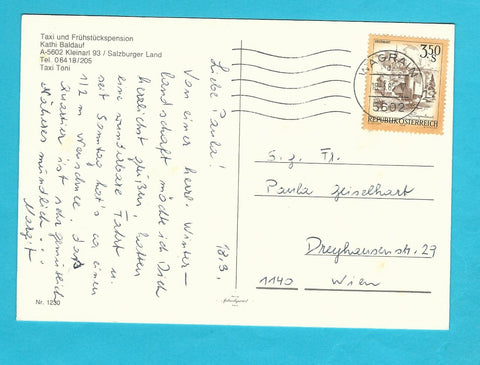 Taxi und Frühstückspension
Kathi Baldauf
A-5602 Kleinarl 93 / Salzburger Land
Tel. 06418/205
Taxi Toni
18.3.
Liebe Paula!
Von einer herrl. Winter-
landschaft möchte ich Dich
herzlichst grüßen – hatten
eine wunderbare Fahrt u.
seit Sonntag hat's ca einen
1/2 m Neuschnee. Das
Quartier ist sehr gemütlich
Näheres mündlich ...
Margit
Nr. 1230
WAGRAIN
5602
3.50
S
REPUBLIK ÖSTERREICH
S. g. Fr.
Paula Geiselhart
Dreyhausenstr. 27
1140 Wien